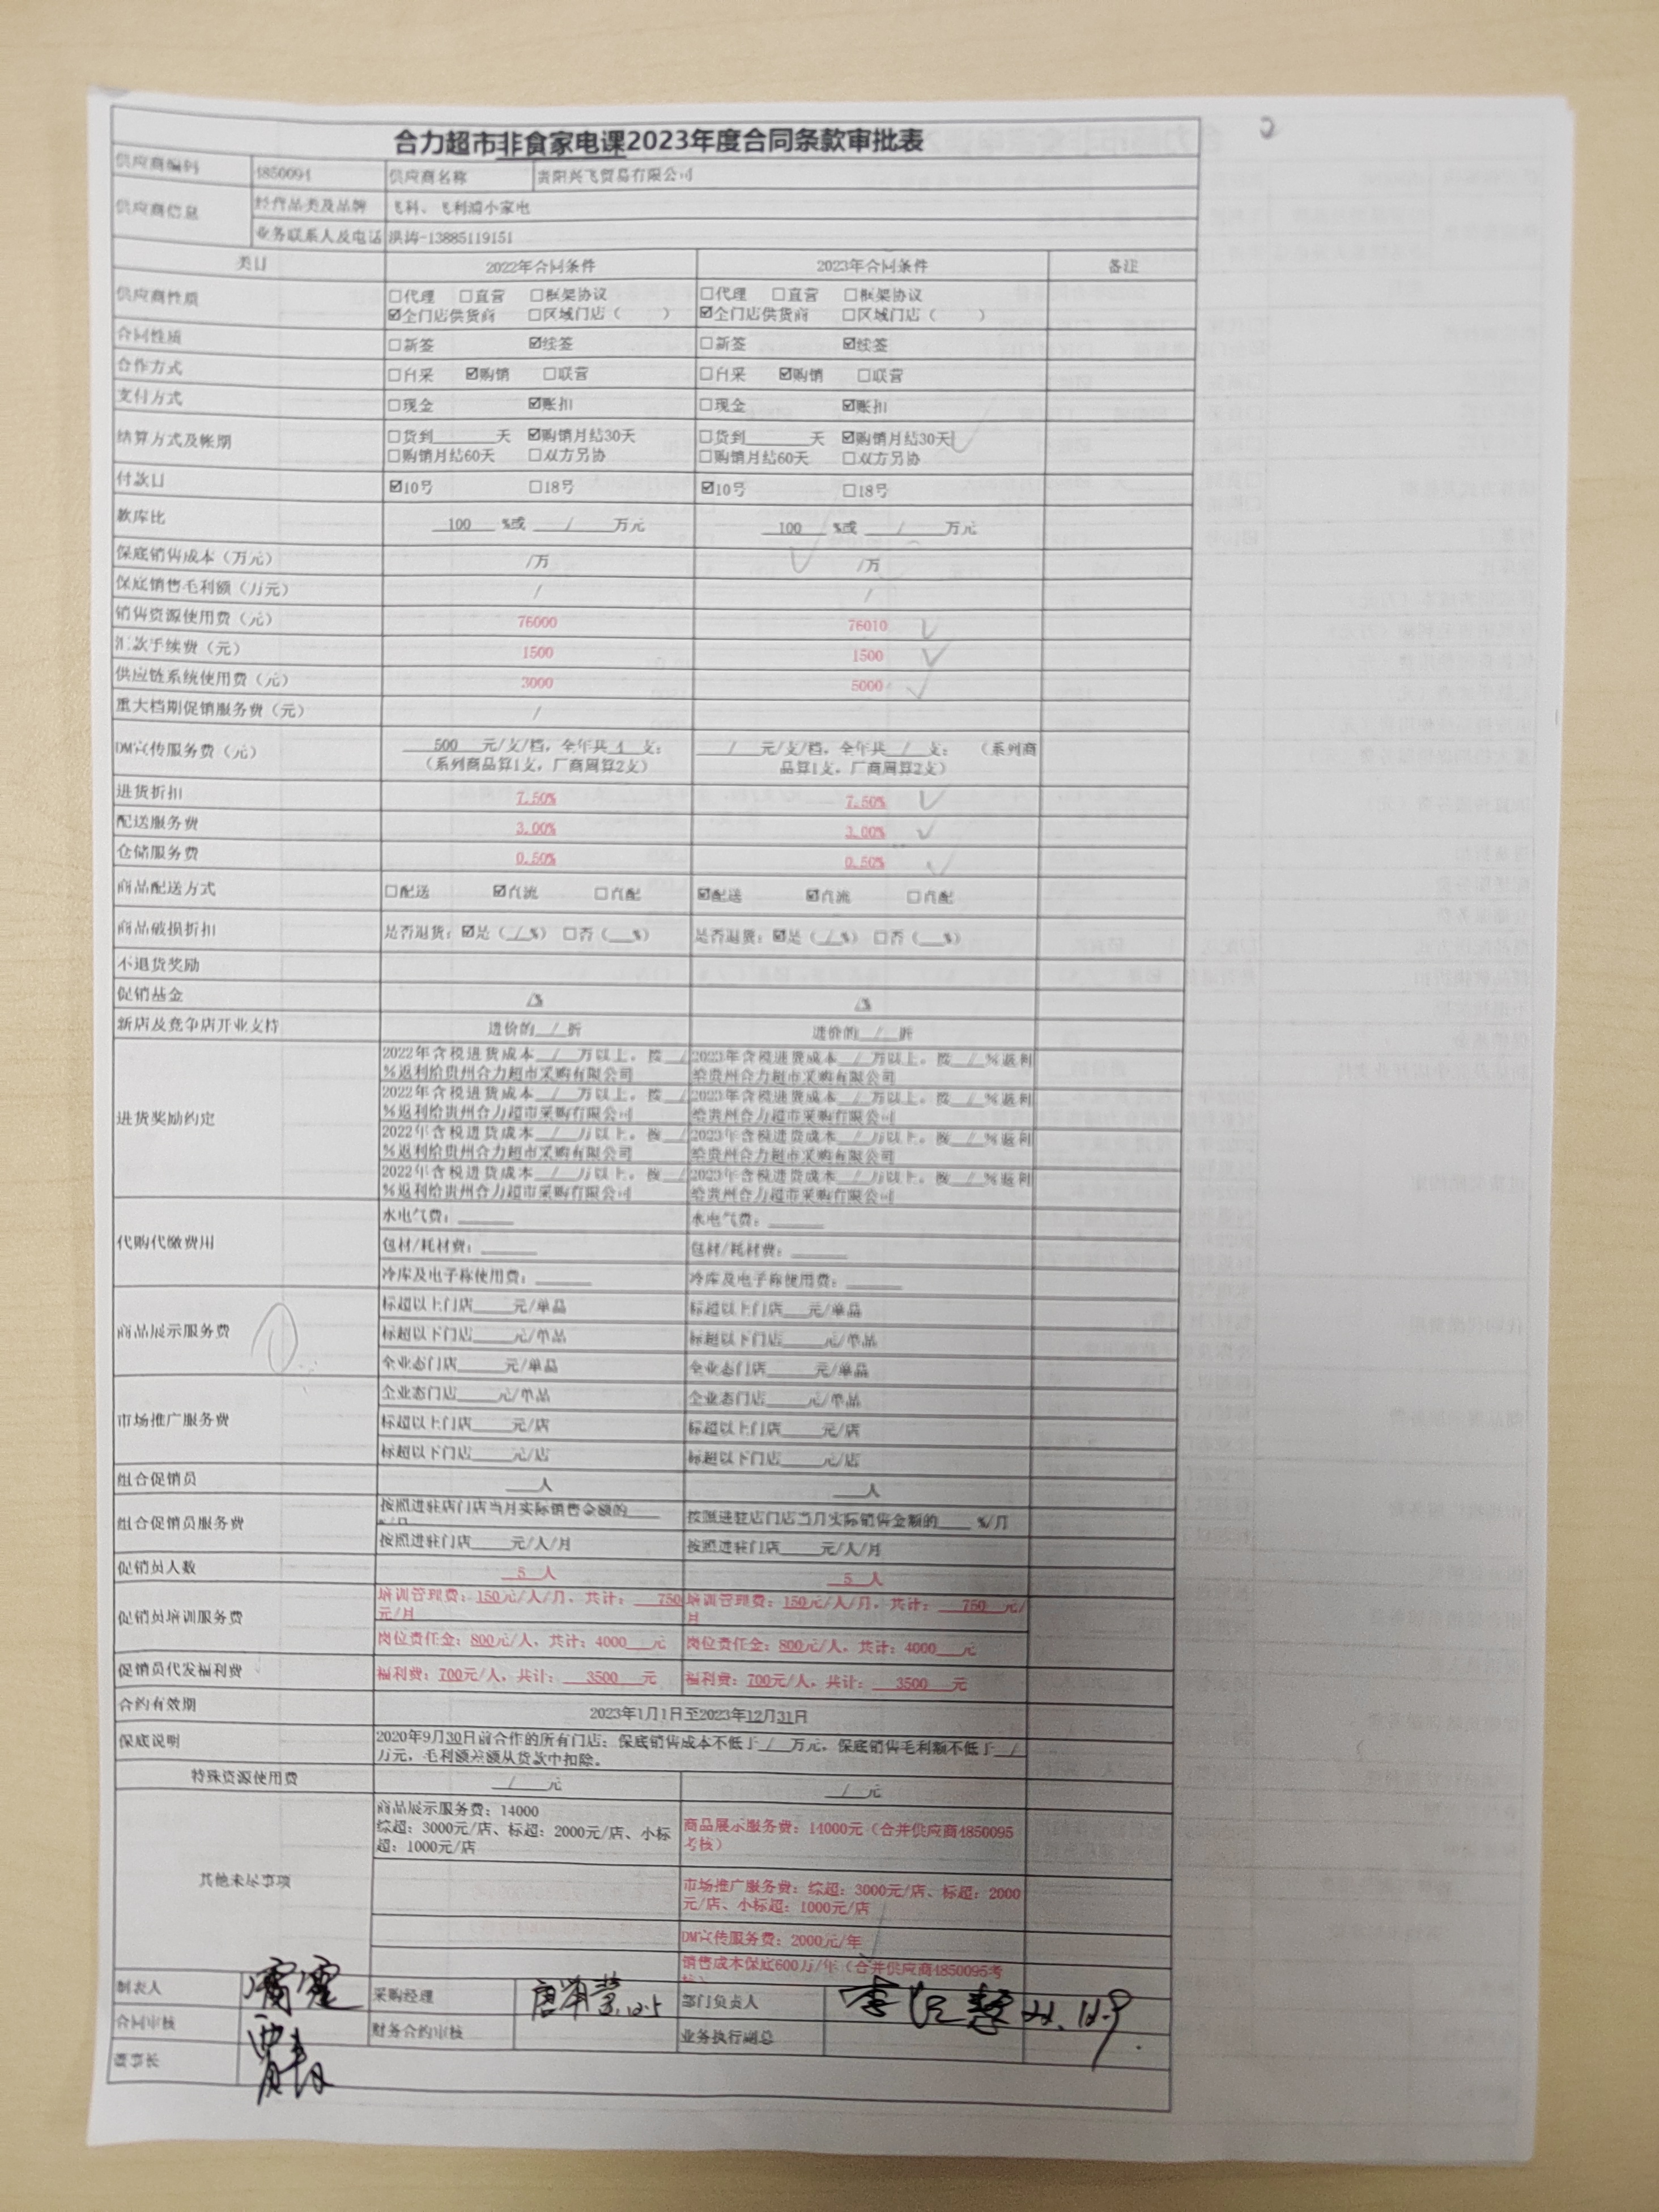 合力超市非食家电课2023年度合同条款审批表
供应商编码 4850094 供应商名称 贵阳兴飞贸易有限公司
供应商信息 经营品类及品牌 飞科、飞利浦小家电
业务联系人及电话 洪涛-13885119151
类目 2022年合同条件 2023年合同条件 备注
供应商性质 □代理 □直营 □框架协议 □代理 □直营 □框架协议
☑全门店供货商 □区域门店（ ） ☑全门店供货商 □区域门店（ ）
合同性质 □新签 ☑续签 □新签 ☑续签
合作方式 □自采 ☑购销 □联营 □自采 ☑购销 □联营
支付方式 □现金 ☑账扣 □现金 ☑账扣
结算方式及帐期 □货到______天 ☑购销月结30天 □货到______天 ☑购销月结30天
□购销月结60天 □双方另协 □购销月结60天 □双方另协
付款日 ☑10号 □18号 ☑10号 □18号
款库比 100 %或 / 万元 100 %或 / 万元
保底销售成本（万元） /万 /万
保底销售毛利额（万元） / /
销售资源使用费（元） 76000 76010
汇款手续费（元） 1500 1500
供应链系统使用费（元） 3000 5000
重大档期促销服务费（元） /
DM宣传服务费（元） 500 元/支/档，全年共 4 支； / 元/支/档，全年共 / 支； （系列商
（系列商品算1支，厂商周算2支） 品算1支，厂商周算2支）
进货折扣 7.50% 7.50%
配送服务费 3.00% 3.00%
仓储服务费 0.50% 0.50%
商品配送方式 □配送 ☑直流 □直配 ☑配送 ☑直流 □直配
商品破损折扣 是否退货：☑是（ / %） □否（___%） 是否退货：☑是（ / %） □否（___%）
不退货奖励
促销基金 /% /%
新店及竞争店开业支持 进价的 / 折 进价的 / 折
进货奖励约定 2022年含税进货成本 / 万以上，按 / 2023年含税进货成本 / 万以上，按 / %返利
%返利给贵州合力超市采购有限公司 给贵州合力超市采购有限公司
2022年含税进货成本 / 万以上，按 / 2023年含税进货成本 / 万以上，按 / %返利
%返利给贵州合力超市采购有限公司 给贵州合力超市采购有限公司
2022年含税进货成本 / 万以上，按 / 2023年含税进货成本 / 万以上，按 / %返利
%返利给贵州合力超市采购有限公司 给贵州合力超市采购有限公司
2022年含税进货成本 / 万以上，按 / 2023年含税进货成本 / 万以上，按 / %返利
%返利给贵州合力超市采购有限公司 给贵州合力超市采购有限公司
代购代缴费用 水电气费：______ 水电气费：______
包材/耗材费：______ 包材/耗材费：______
冷库及电子称使用费：______ 冷库及电子称使用费：______
商品展示服务费 标超以上门店____元/单品 标超以上门店____元/单品
标超以下门店____元/单品 标超以下门店____元/单品
全业态门店____元/单品 全业态门店____元/单品
市场推广服务费 企业态门店____元/单品 企业态门店____元/单品
标超以上门店____元/店 标超以上门店____元/店
标超以下门店____元/店 标超以下门店____元/店
组合促销员 ____人 ____人
组合促销员服务费 按照进驻店门店当月实际销售金额的___ 按照进驻店门店当月实际销售金额的___ %/月
%/月
按照进驻门店____元/人/月 按照进驻门店____元/人/月
促销员人数 5 人 5 人
促销员培训服务费 培训管理费：150元/人/月，共计： 750 培训管理费：150元/人/月，共计： 750 元/
元/月 月
岗位责任金：800元/人，共计：4000 元 岗位责任金：800元/人，共计：4000 元
促销员代发福利费 福利费：700元/人，共计： 3500 元 福利费：700元/人，共计： 3500 元
合约有效期 2023年1月1日至2023年12月31日
保底说明 2020年9月30日前合作的所有门店：保底销售成本不低于 / 万元，保底销售毛利额不低于 /
万元，毛利额差额从货款中扣除。
特殊资源使用费 / 元 / 元
其他未尽事项 商品展示服务费：14000
综超：3000元/店、标超：2000元/店、小标
超：1000元/店
商品展示服务费：14000元（合并供应商4850095
考核）
市场推广服务费：综超：3000元/店、标超：2000
元/店、小标超：1000元/店
DM宣传服务费：2000元/年
销售成本保底600万/年（合并供应商4850095考
制表人 采购经理 12.5 部门负责人 22.12.9
合同审核 财务合约审核 业务执行副总
董事长